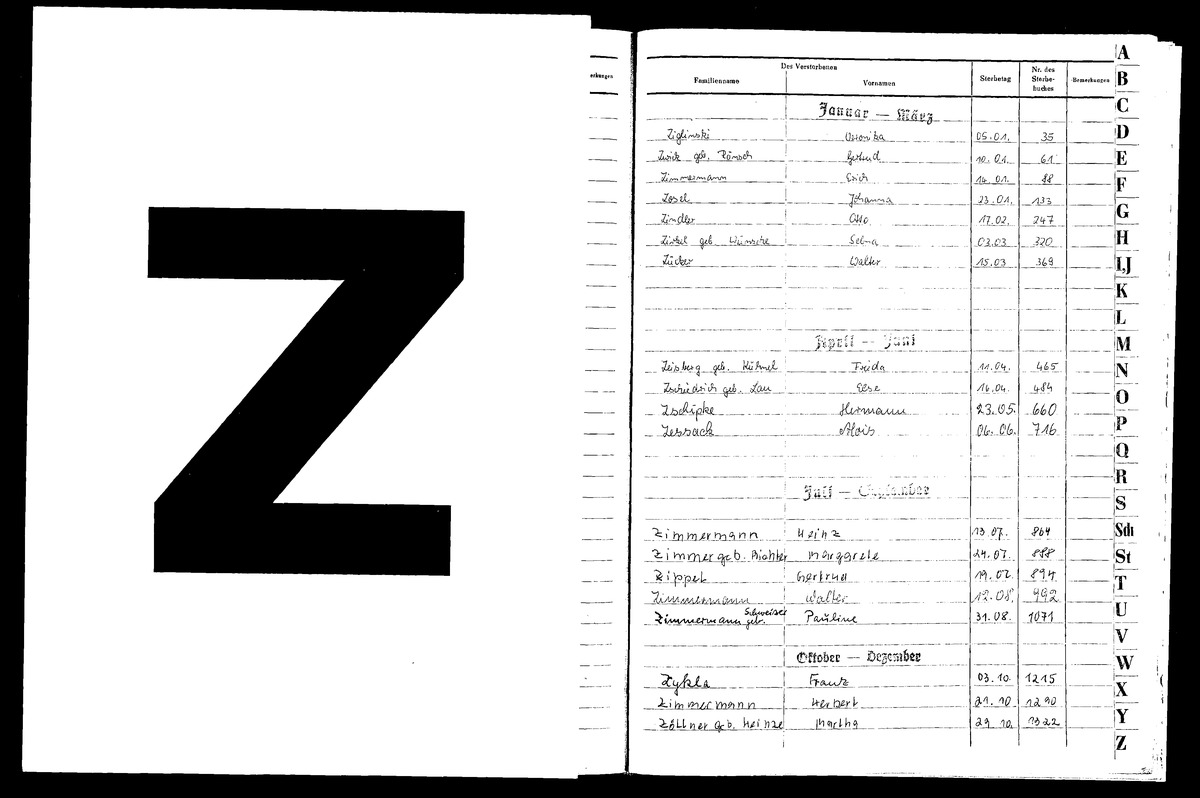 Z
Bemerkungen
Des Verstorbenen
Familienname Vornamen Sterbetag Nr. des Sterbe-buches Bemerkungen
Januar — März
Ziglinski Veronika 05.01. 35
Zwick geb. Rönsch Gertrud 10.01. 61
Zimmermann Erich 14.01. 88
Zosel Johanna 23.01. 133
Zindler Otto 17.02. 247
Zirkel geb. Wünsche Selma 03.03 320
Zücker Walter 15.03 369
April — Juni
Zeisberg geb. Kühnel Frieda 11.04. 465
Zschiedrich geb. Lau Else 16.04. 484
Zschipke Hermann 23.05. 660
Zessack Alois 06.06. 716
Juli — September
Zimmermann Heinz 13.07. 864
Zimmer geb. Richter Margarete 24.07. 888
Zippel Gertrud 19.07. 894
Zimmermann Walter 12.08. 992
Zimmermann geb. Schweiser Pauline 31.08. 1071
Oktober — Dezember
Zykla Franz 03.10. 1215
Zimmermann Herbert 21.10 1290
Zöllner geb. Heinze Martha 29.10. 1322
A
B
C
D
E
F
G
H
I,J
K
L
M
N
O
P
Q
R
S
Sch
St
T
U
V
W
X
Y
Z